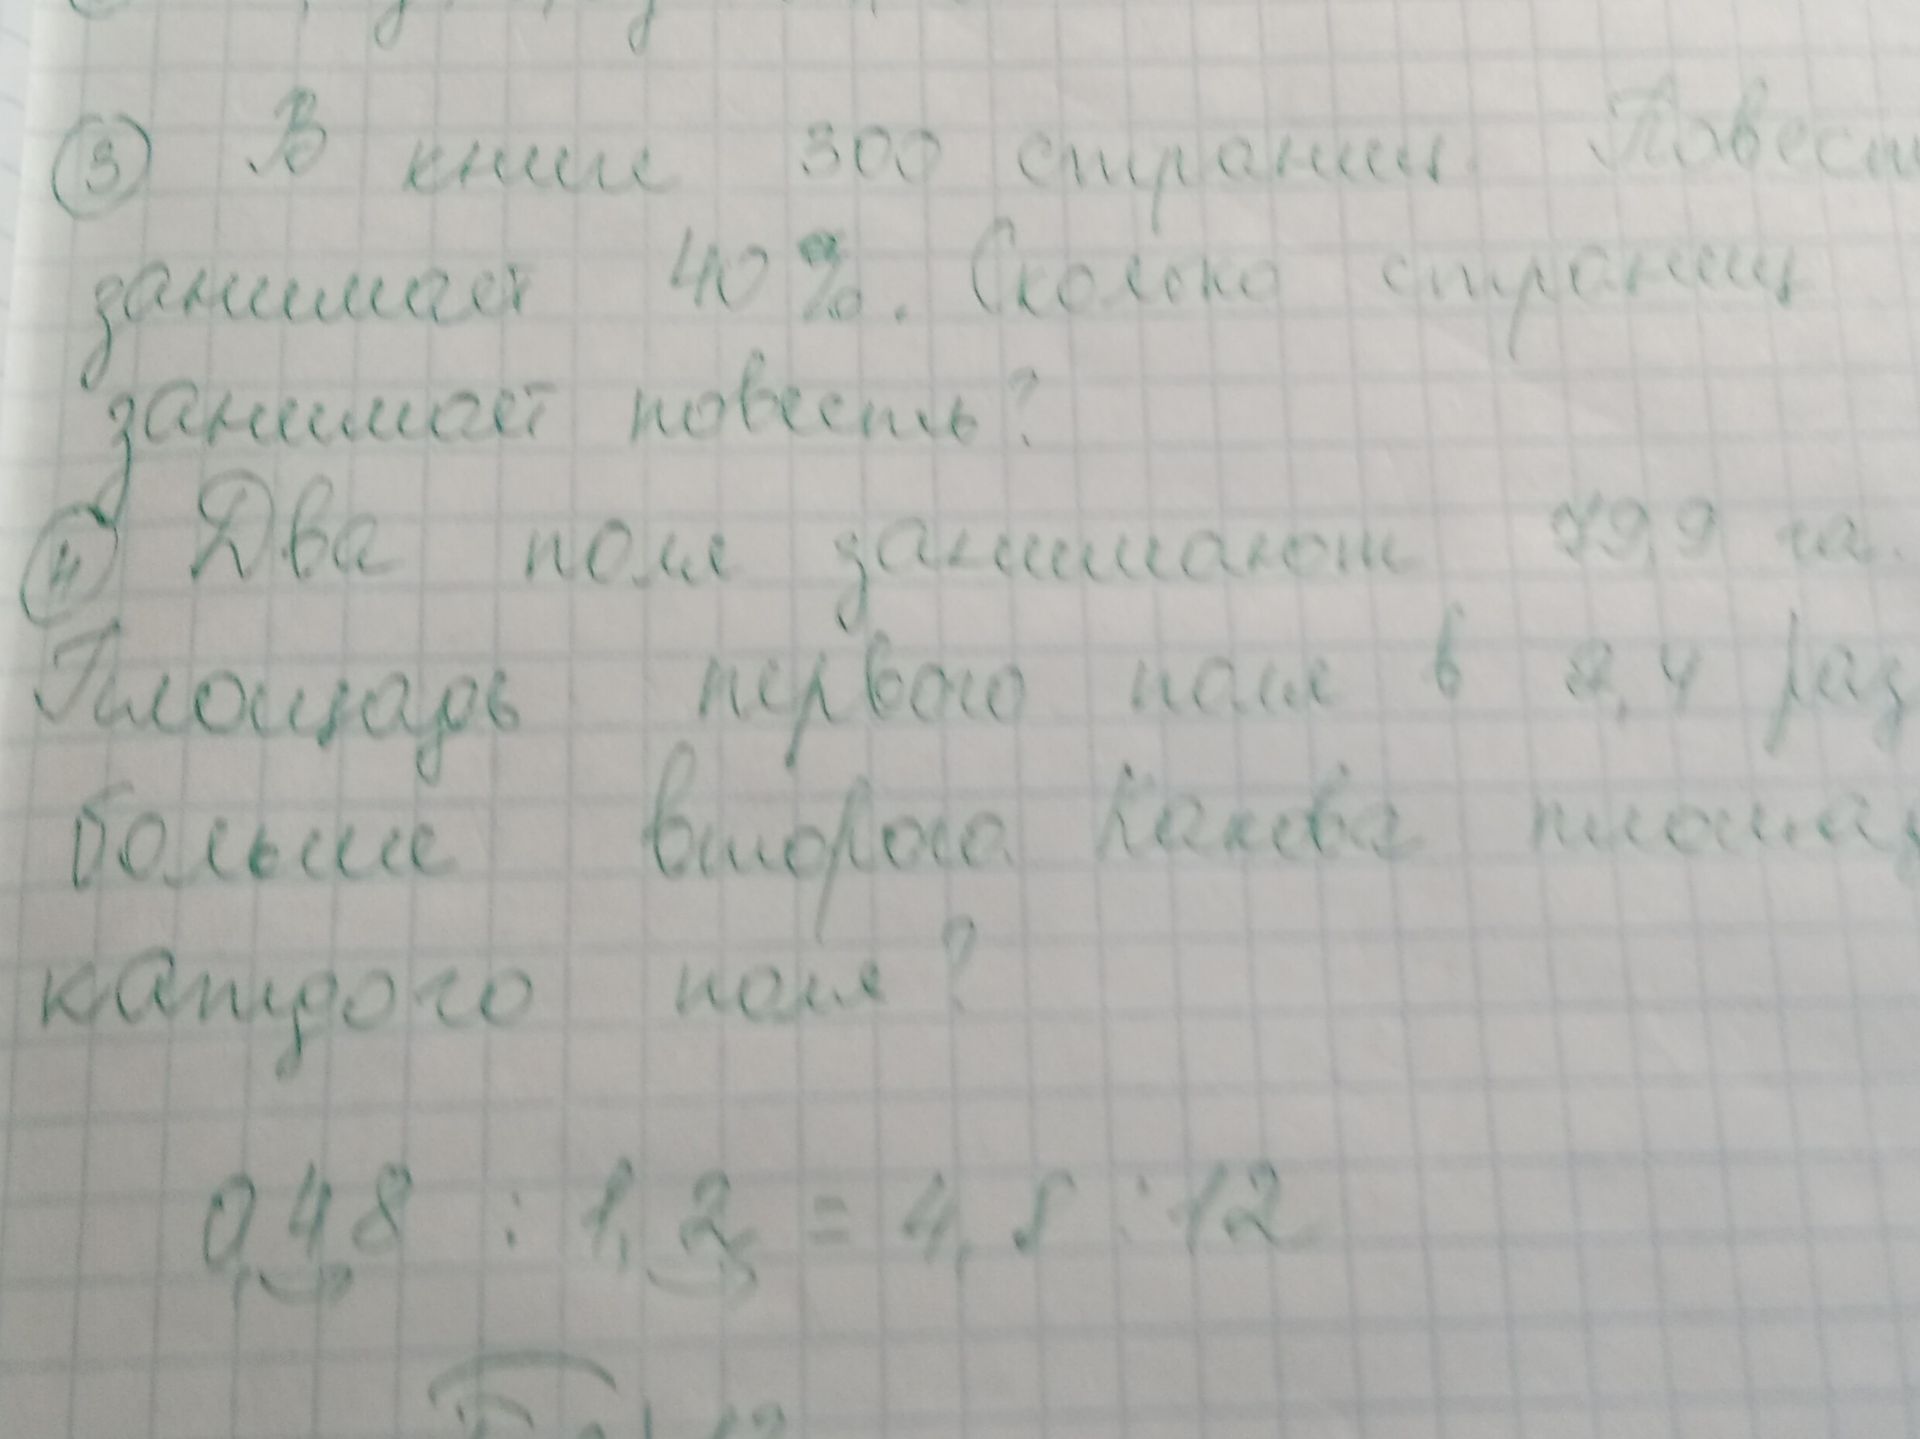 ③ В книге 300 страниц. Повест
занимает 40%. Сколько страниц
занимает повесть?
④ Два поля занимают 79,9 га.
Площадь первого поля в 2,4 раз
больше второго. Какова площад
каждого поля?
0,48 : 1,2 = 4,8 : 12